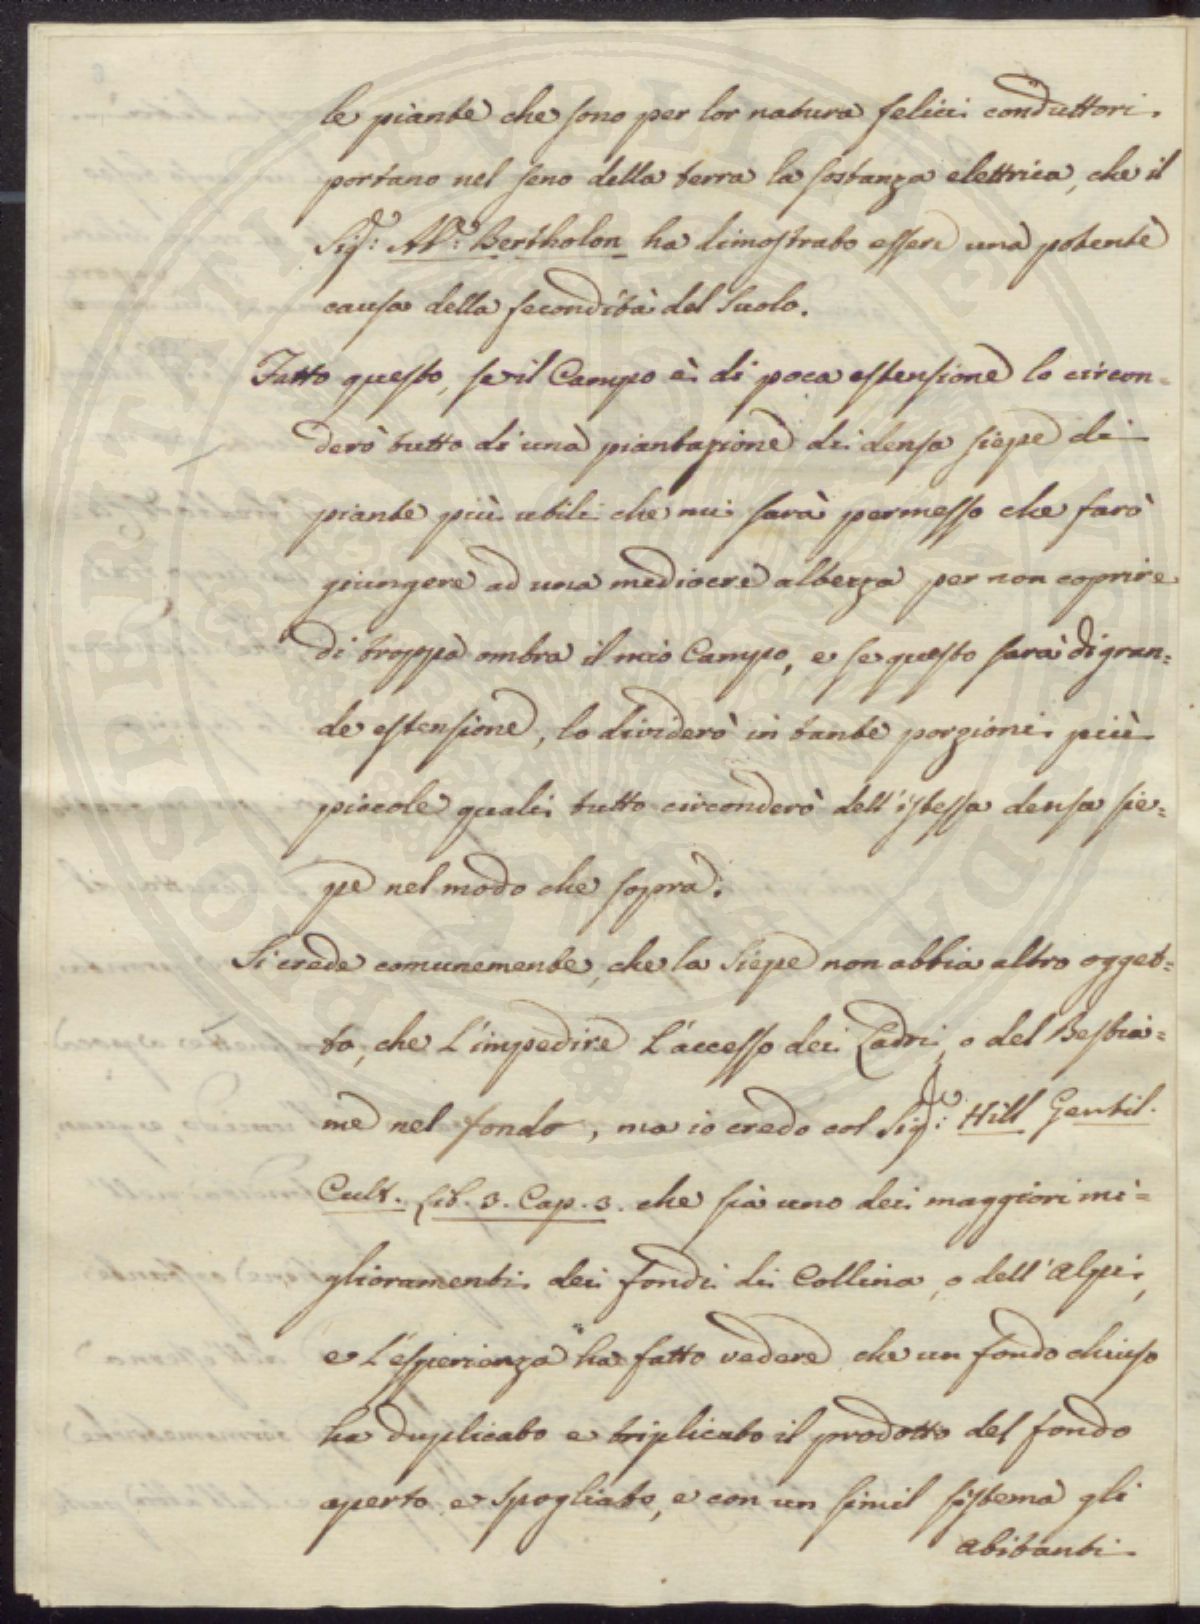 le piante che sono per lor natura felici conduttori
portano nel seno della terra la sostanza elettrica, che il
Sig.r: Ab.e: Bertholon ha dimostrato essere una potente
causa della fecondità del Suolo.
Fatto questo, se il Campo è di poca estensione lo circon=
derò tutto di una piantazione di densa siepe di
piante più utili che mi sarà permesso che farò
giungere ad una mediocre altezza per non coprire
di troppa ombra il mio Campo, e se questo sarà di gran=
de estensione, lo dividerò in tante porzioni più
piccole quali tutto circonderò dell'istessa densa sie=
pe nel modo che sopra.
Si crede comunemente, che la Siepe non abbia altroogget=
to, che l'impedire l'accesso dei Ladri, o del Bestia=
me nel fondo, ma io credo col Sig.re: Hill Gentil.
Cult. Lib. 3. Cap. 3. che sia uno dei maggiori mi=
glioramenti dei fondi di Collina, o dell'Alpi,
e l'esperienza ha fatto vedere che un fondo chiuso
ha duplicato e triplicato il prodotto del fondo
aperto e spogliato, e con un simil sistema gli
abitanti
PROSPERITATI PUBLICAE